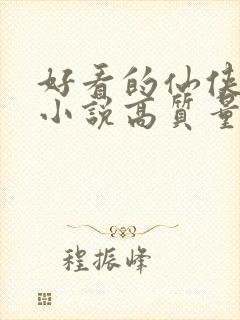 好看的仙侠
小說高質量
程振峰